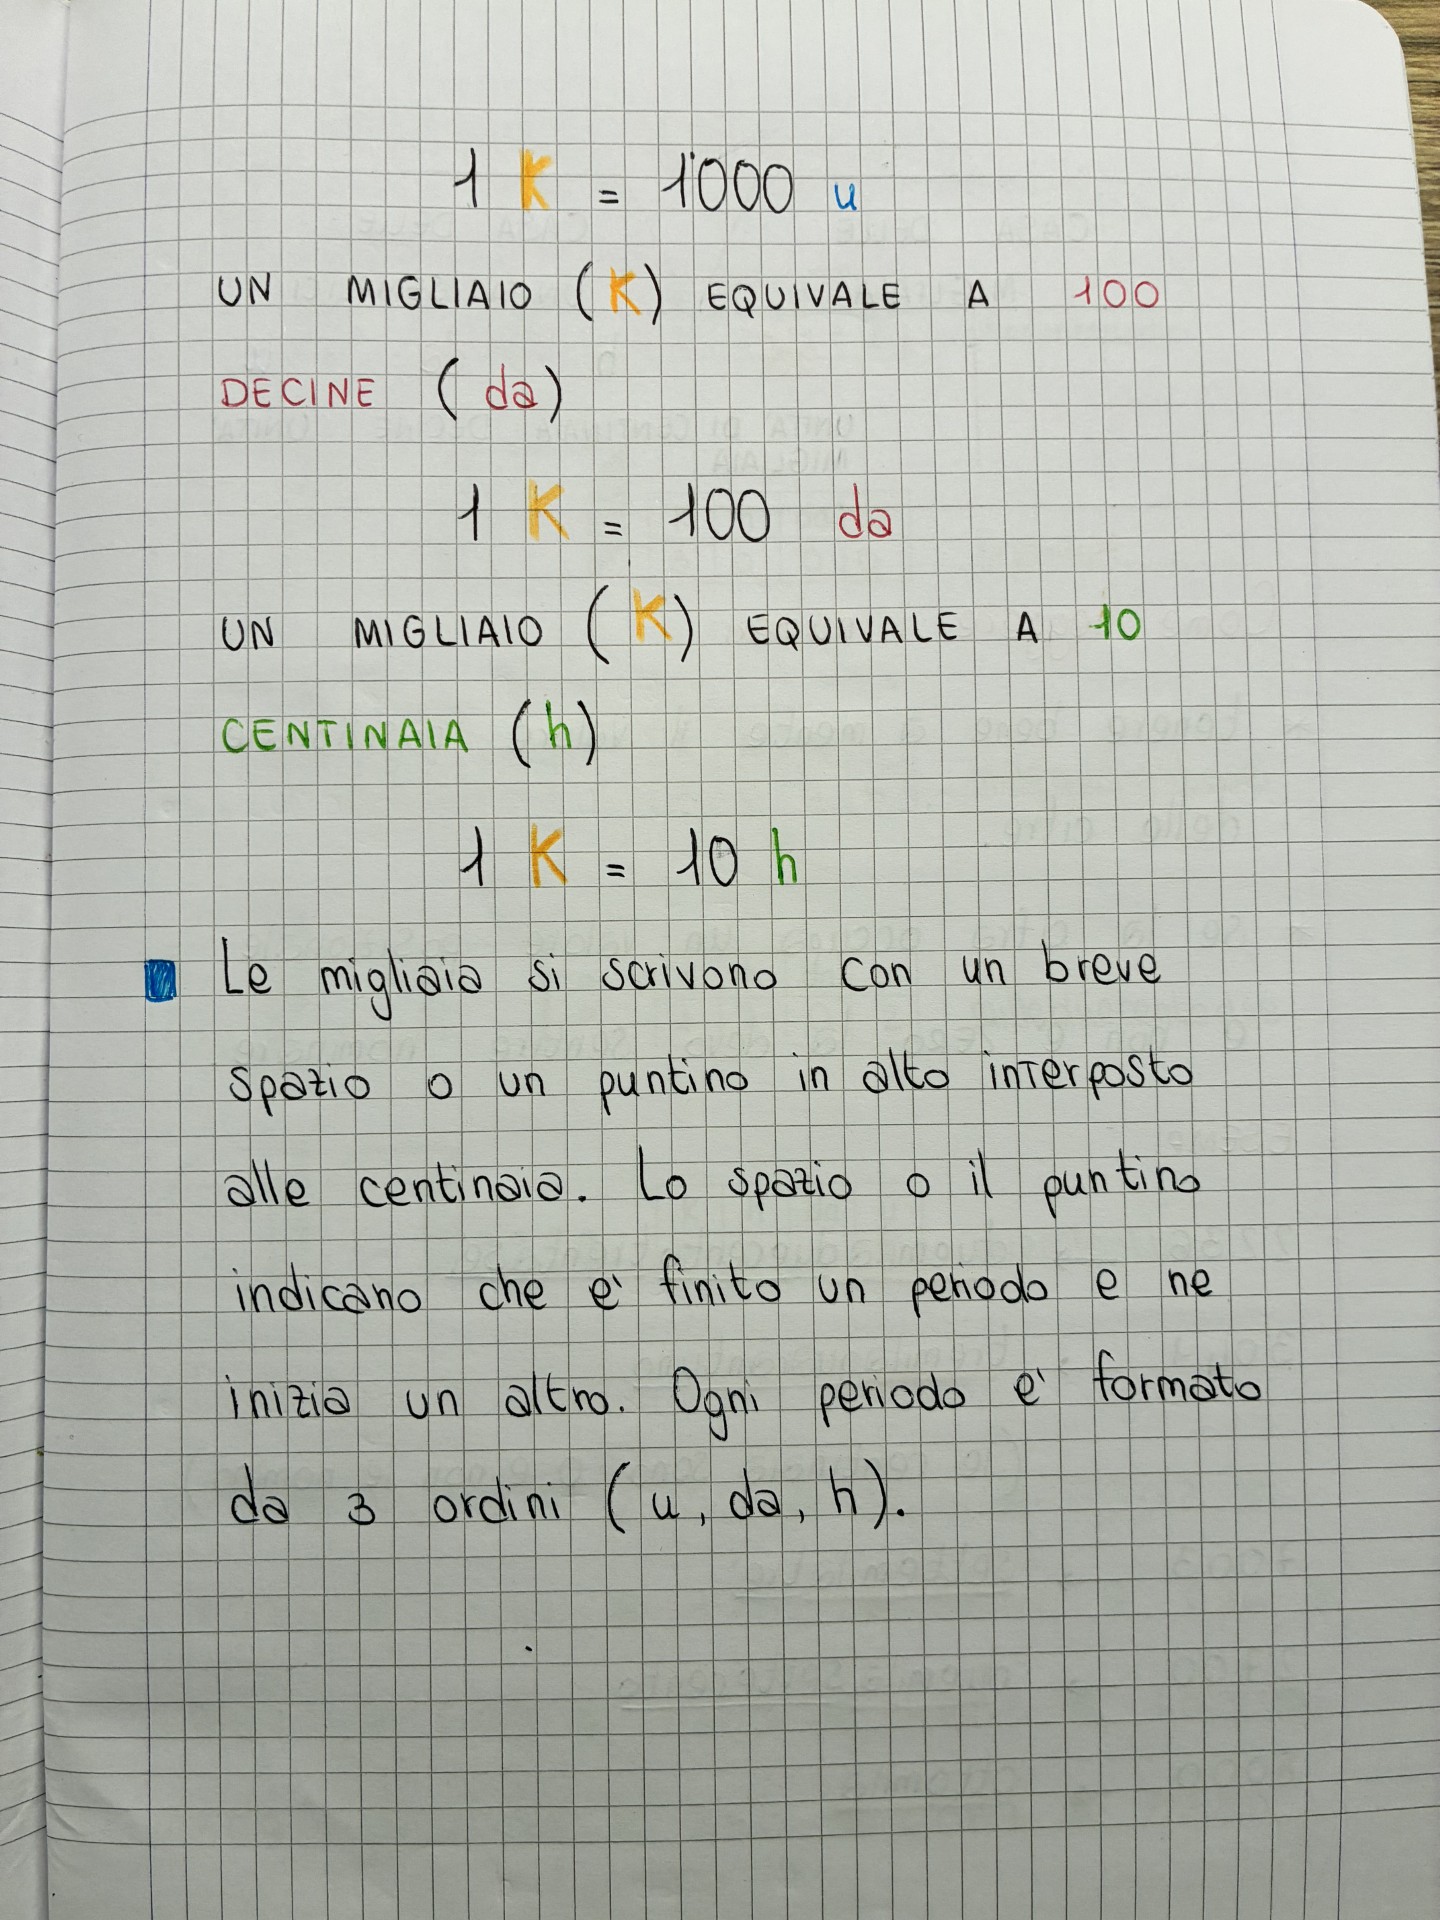 1 K = 1˙000 u
UN MIGLIAIO (K) EQUIVALE A 100
DECINE (da)
1 K = 100 da
UN MIGLIAIO (K) EQUIVALE A 10
CENTINAIA (h)
1 K = 10 h
Le migliaia si scrivono con un breve
spazio o un puntino in alto interposto
alle centinaia. Lo spazio o il puntino
indicano che e' finito un periodo e ne
inizia un altro. Ogni periodo e' formato
da 3 ordini (u, da, h).